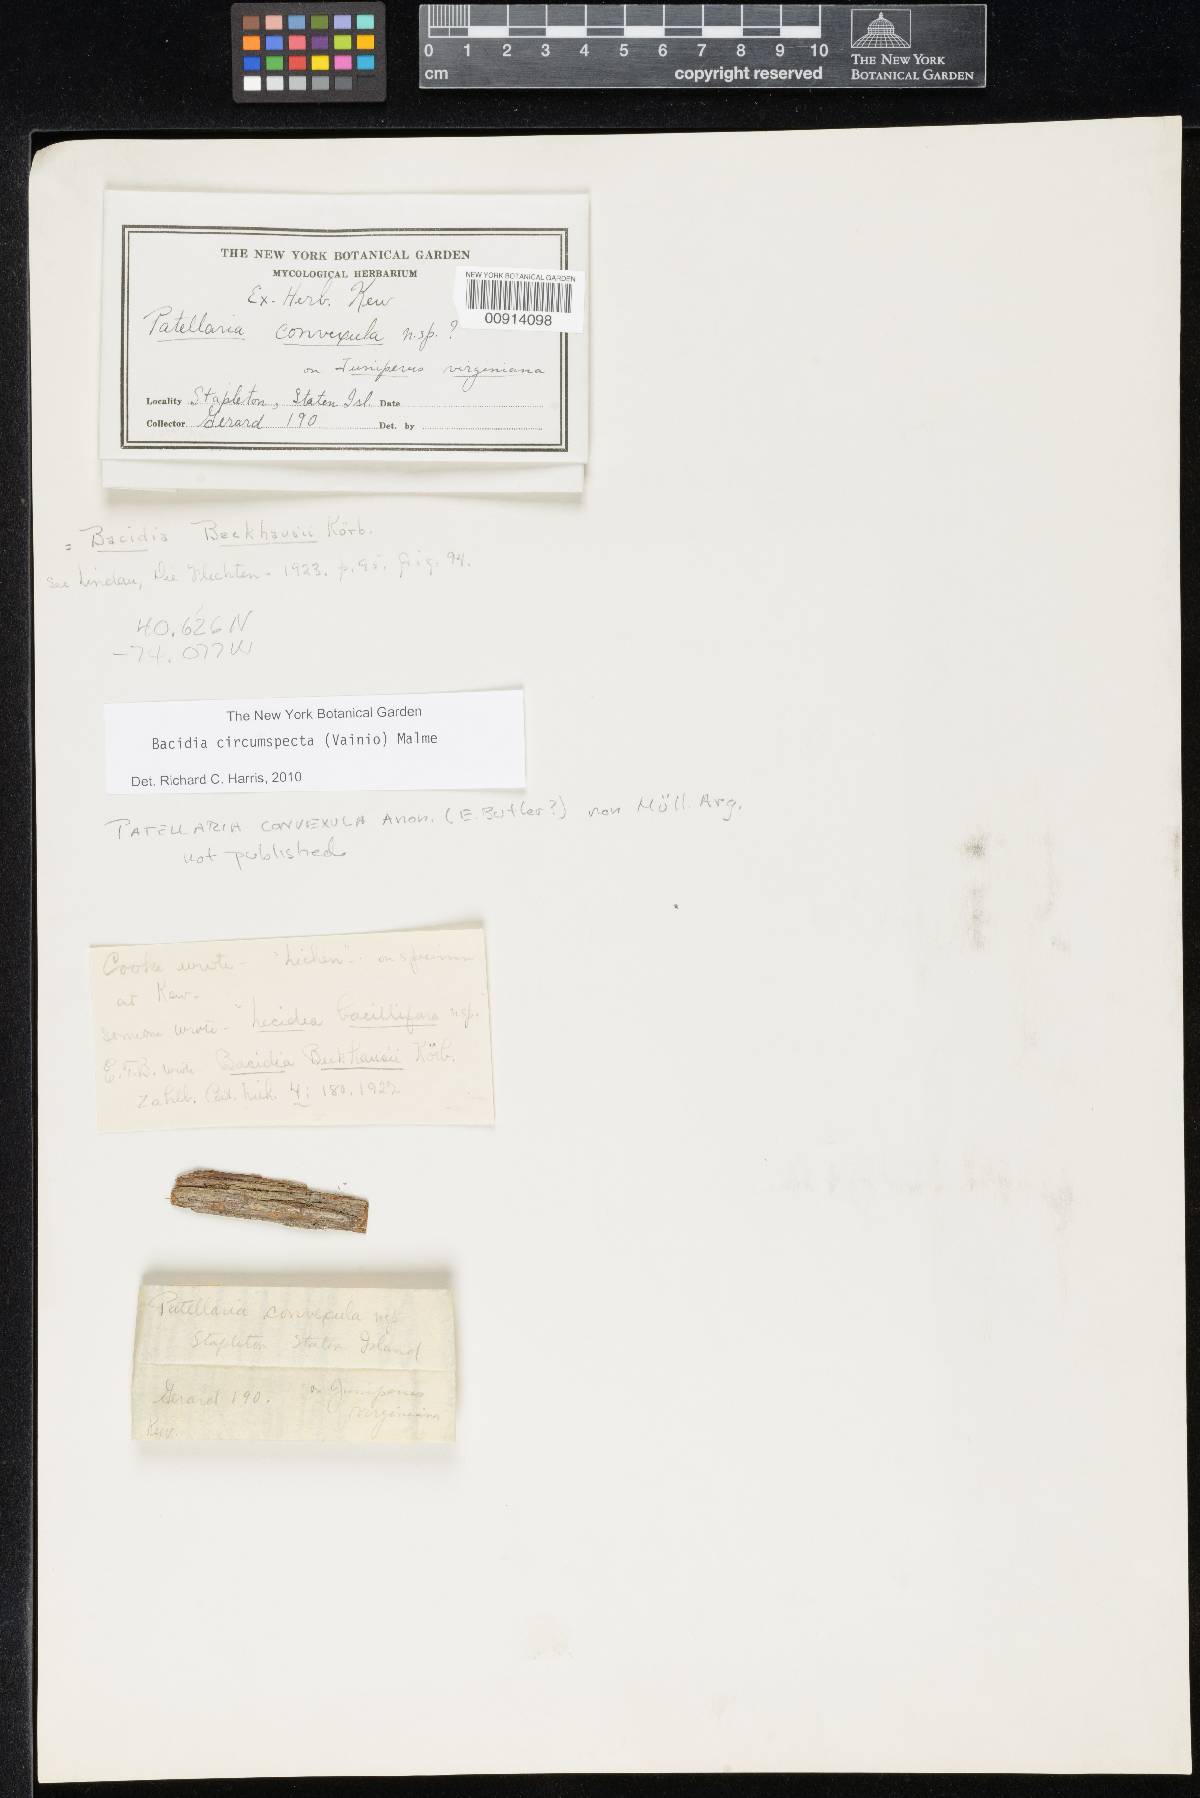 0 1 2 3 4 5 6 7 8 9 10
cm copyright reserved
THE NEW YORK
BOTANICAL GARDEN
THE NEW YORK BOTANICAL GARDEN
MYCOLOGICAL HERBARIUM
NEW YORK BOTANICAL GARDEN
00914098
Ex. Herb. Kew
Patellaria convexula n.sp.?
on Juniperus virginiana
Locality Stapleton, Staten Isl. Date
Collector Gerard 190 Det. by
= Bacidia Beckhausii Körb.
See Lindau, Die Flechten - 1923. p. 95. fig. 94.
40.626 N
-74.077 W
The New York Botanical Garden
Bacidia circumspecta (Vainio) Malme
Det. Richard C. Harris, 2010
PATELLARIA CONVEXULA Anon. (E. Butler?) non Müll. Arg.
not published
Cooke wrote - "Lichen" - on specimen
at Kew.
Someone wrote - "Lecidea bacillifera n.sp."
E.T.B. wrote Bacidia Beckhausii Körb.
Zahlb. Cat. Lich. 4: 180. 1922
Patellaria convexula nsp
Stapleton Staten Island
Gerard 190. on Juniperus
virginiana
Kew.